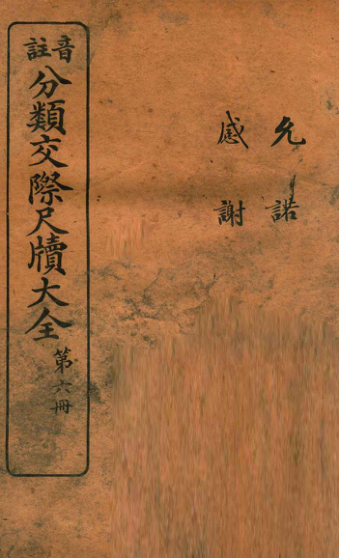 音註
分類交際尺牘大全
第六冊
允諾
感謝